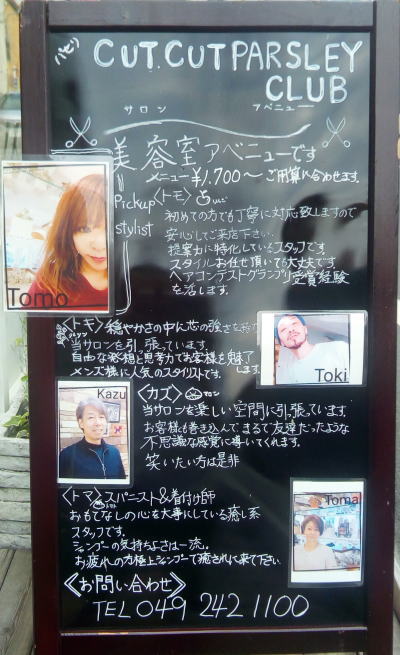 パセリ
CUT.CUT PARSLEY
CLUB
サロン
アベニュー
美容室アベニューです
メニュー ¥1,700〜 ご用算に合わせます。
Pickup
stylist
〈トモ〉
初めての方でも丁寧に対応致しますので
安心してご来店下さい。
提案力に特化しているスタッフです
スタイルお任せ頂いても大丈夫です
ヘアコンテストグランプリ受賞経験
を活します。
Tomo
〈トキ〉穏やかさの中に芯の強さを
当サロンを引っ張っています。
自由な発想と思考力でお客様を魅了
します。
メンズ様に人気のスタイリストです。
Toki
Kazu
〈カズ〉
当サロンを楽しい空間に引っ張っています。
お客様も巻き込んでまるで友達だったような
不思議な感覚に導いてくれます。
笑いたい方は是非
〈トマ〉スパニスト&着付け師
おもてなしの心を大事にしている癒し系
スタッフです。
シャンプーの気持ちよさは一流。
お疲れの方極上シャンプーで癒されに来て下さい
Toma
〈お問い合わせ〉
TEL 049 242 1100